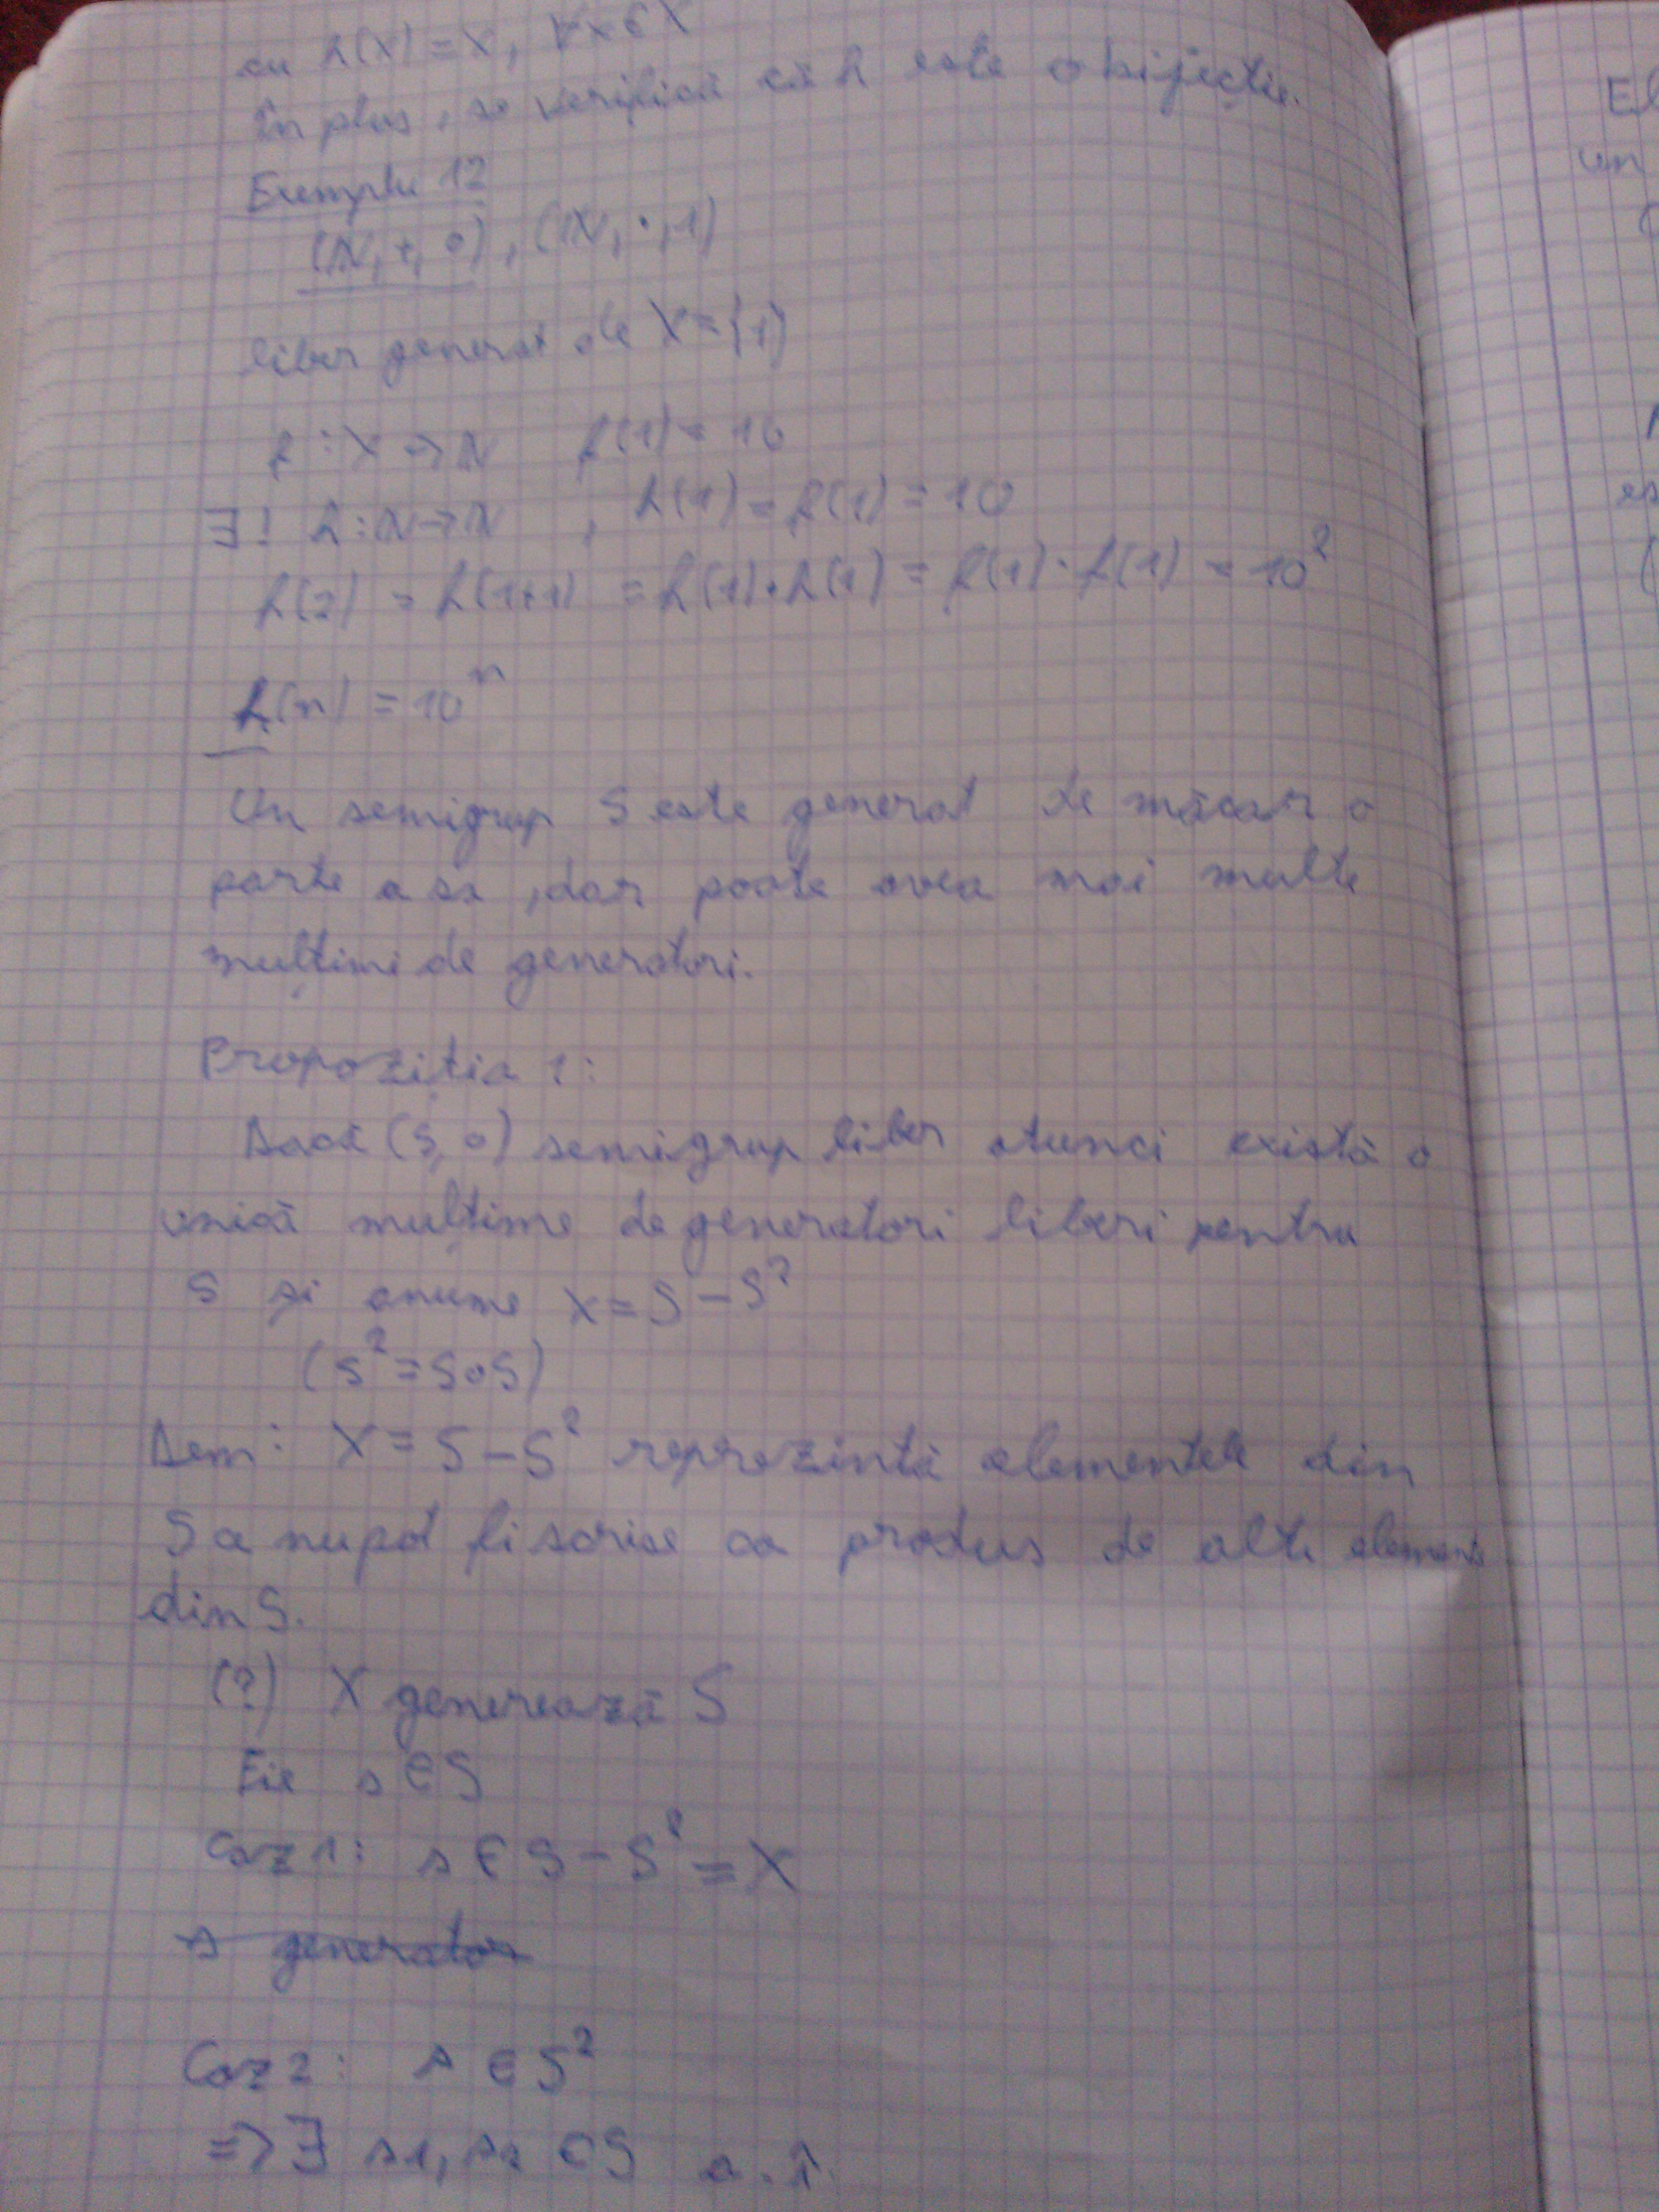 cu h(x) = x, ∀x∈X
În plus, se verifică că h este o bijecție.
Exemplu 12
(ℕ, +, 0), (ℕ, ·, 1)
liber generat de X = {1}
f : X → ℕ f(1) = 10
∃! h : ℕ → ℕ , h(1) = f(1) = 10
h(2) = h(1+1) = h(1)·h(1) = f(1)·f(1) = 10²
h(n) = 10ⁿ
Un semigrup S este generat de măcar o
parte a sa, dar poate avea mai multe
mulțimi de generatori.
Propoziția 1:
Dacă (S, ∘) semigrup liber atunci există o
unică mulțime de generatori liberi pentru
S și anume X = S − S²
(S² = S∘S)
Dem: X = S − S² reprezintă elementele din
S ce nu pot fi scrise ca produs de alte elemente
din S.
(?) X generează S
Fie s ∈ S
Caz 1: s ∈ S − S² = X
s generator
Caz 2: s ∈ S²
=> ∃ s1, s2 ∈ S a. î.
El
un
es